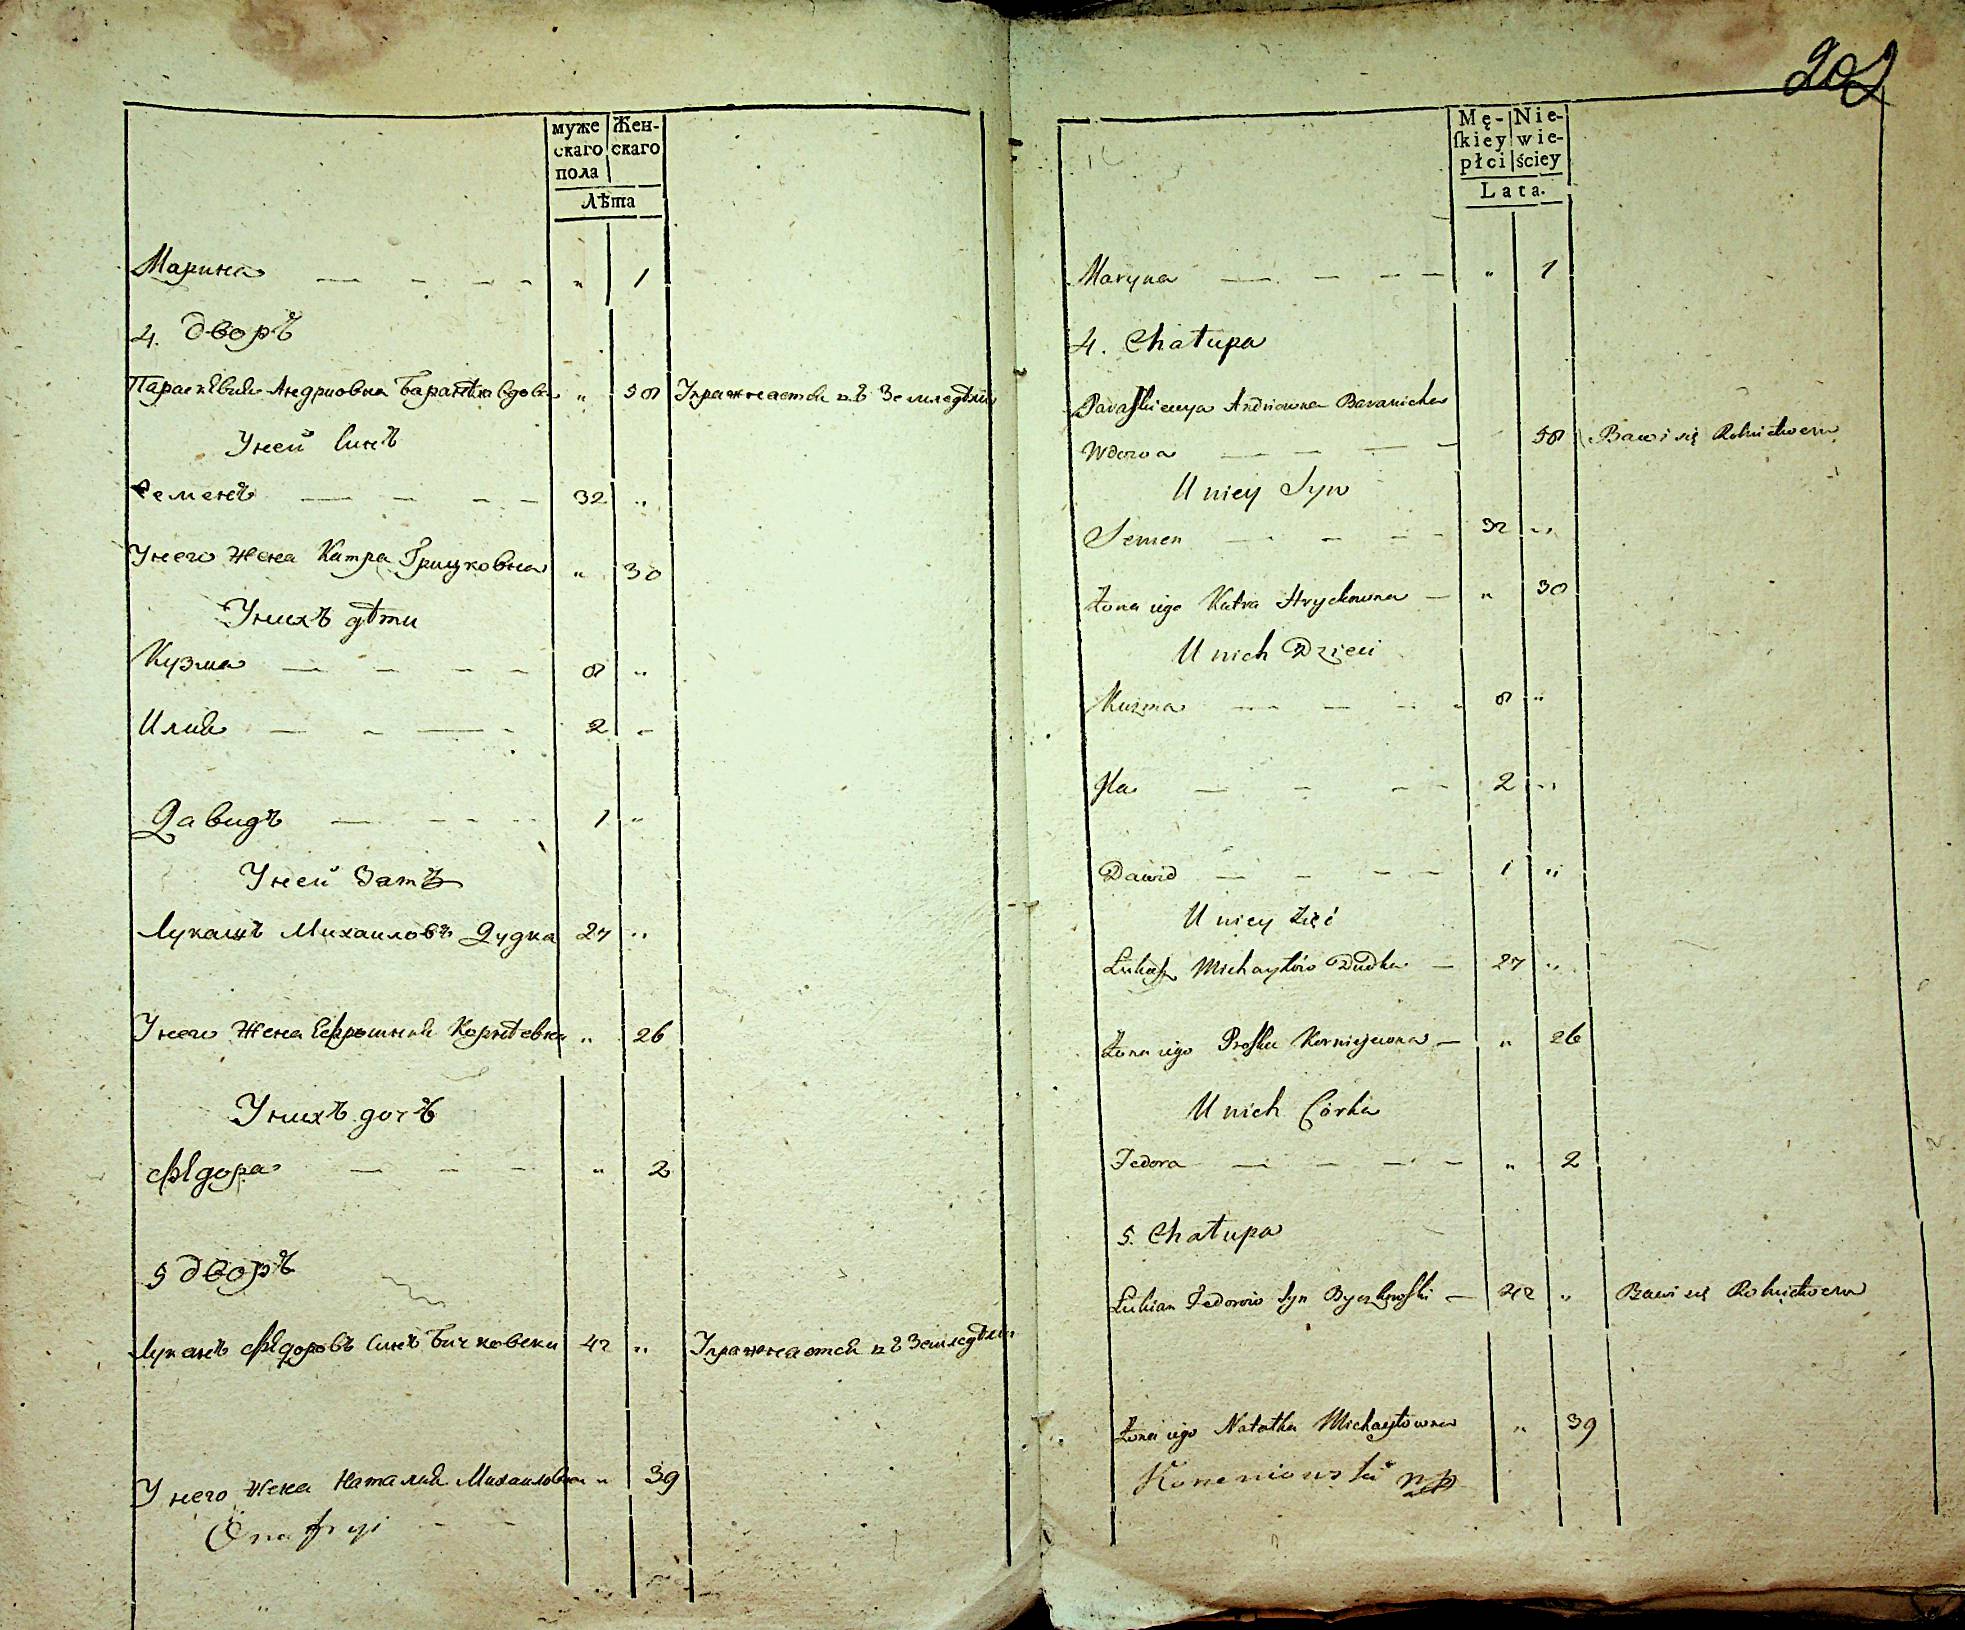 202
муже
скаго
пола
Жен-
скаго
Лѣта
Марина — — — — „ 1
4. дворъ
Параскѣвия Андриовна Баранѣха вдова „ 58 Упражнается въ Земледѣлии
У ней Синъ
Семенъ — — — — 32 „
У него жена Катра Грицковна „ 30
У нихъ дѣти
Кузма — — — — 8 „
Илия — — — — 2 „
Давидъ — — — — 1 „
У ней Зать
Лукашъ Михаиловъ Дудка 27 „
У него жена Ефросиния Корнѣевна „ 26
У нихъ дочь
Ѳедора — — — „ 2
5 дворъ
Лукянъ Ѳедоровъ Синъ Бичковски 42 „ Упражнается въ Земледѣлии
У него жена Наталия Михаиловна „ 39
Onafryi — —
Mę-
ſkiey
płci
Nie-
wie-
ściey
Lata.
Maryna — — — — „ 1
4. Chałupa
Paraſkiewya Andriowna Baranicha
Wdowa — — — — 58 Bawi się Rolnictwem
U niey Syn
Semen — — — — 32 „
Żona iego Katra Hryckowna — „ 30
U nich Dzieci
Kuzma — — — — 8 „
Ila — — — — 2 „
Dawid — — — — 1 „
U niey Zięć
Łukaſz Michayłów Dudka — 27 „
Żona iego Proſka Korniejewna — „ 26
U nich Córka
Fedora — — — — „ 2
5. Chałupa
Łukian Fedorow Syn Byczkowſki — 42 „ Bawi się Rolnictwem
Żona iego Natałka Michayłowna „ 39